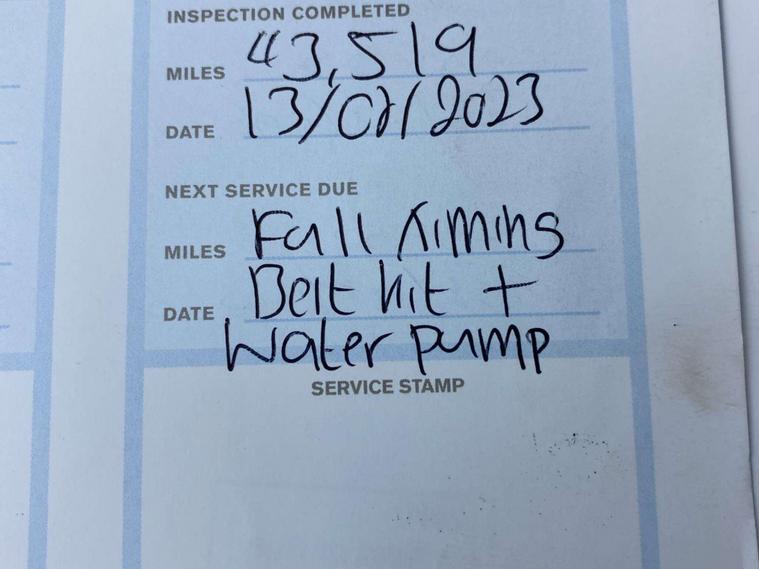 INSPECTION COMPLETED
MILES 43,519
DATE 13/02/2023
NEXT SERVICE DUE
MILES Full Timing
DATE Belt kit +
Water pump
SERVICE STAMP